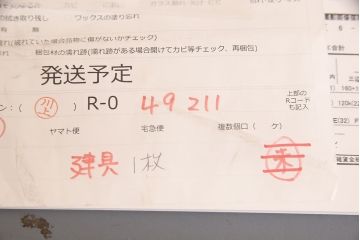 の拭き取り残し　ワックスの塗り忘れ
れ(濡れていた場合品物に傷がないかチェック)
梱包材の濡れ跡(濡れ跡がある場合開けてカビ等チェック、再梱包)
発送予定
ン:( 川上 ) R-0 49211
上部の
Rコード
も記入
ヤマト便　宅急便　複数個口(　ケ)
建具 1枚 未